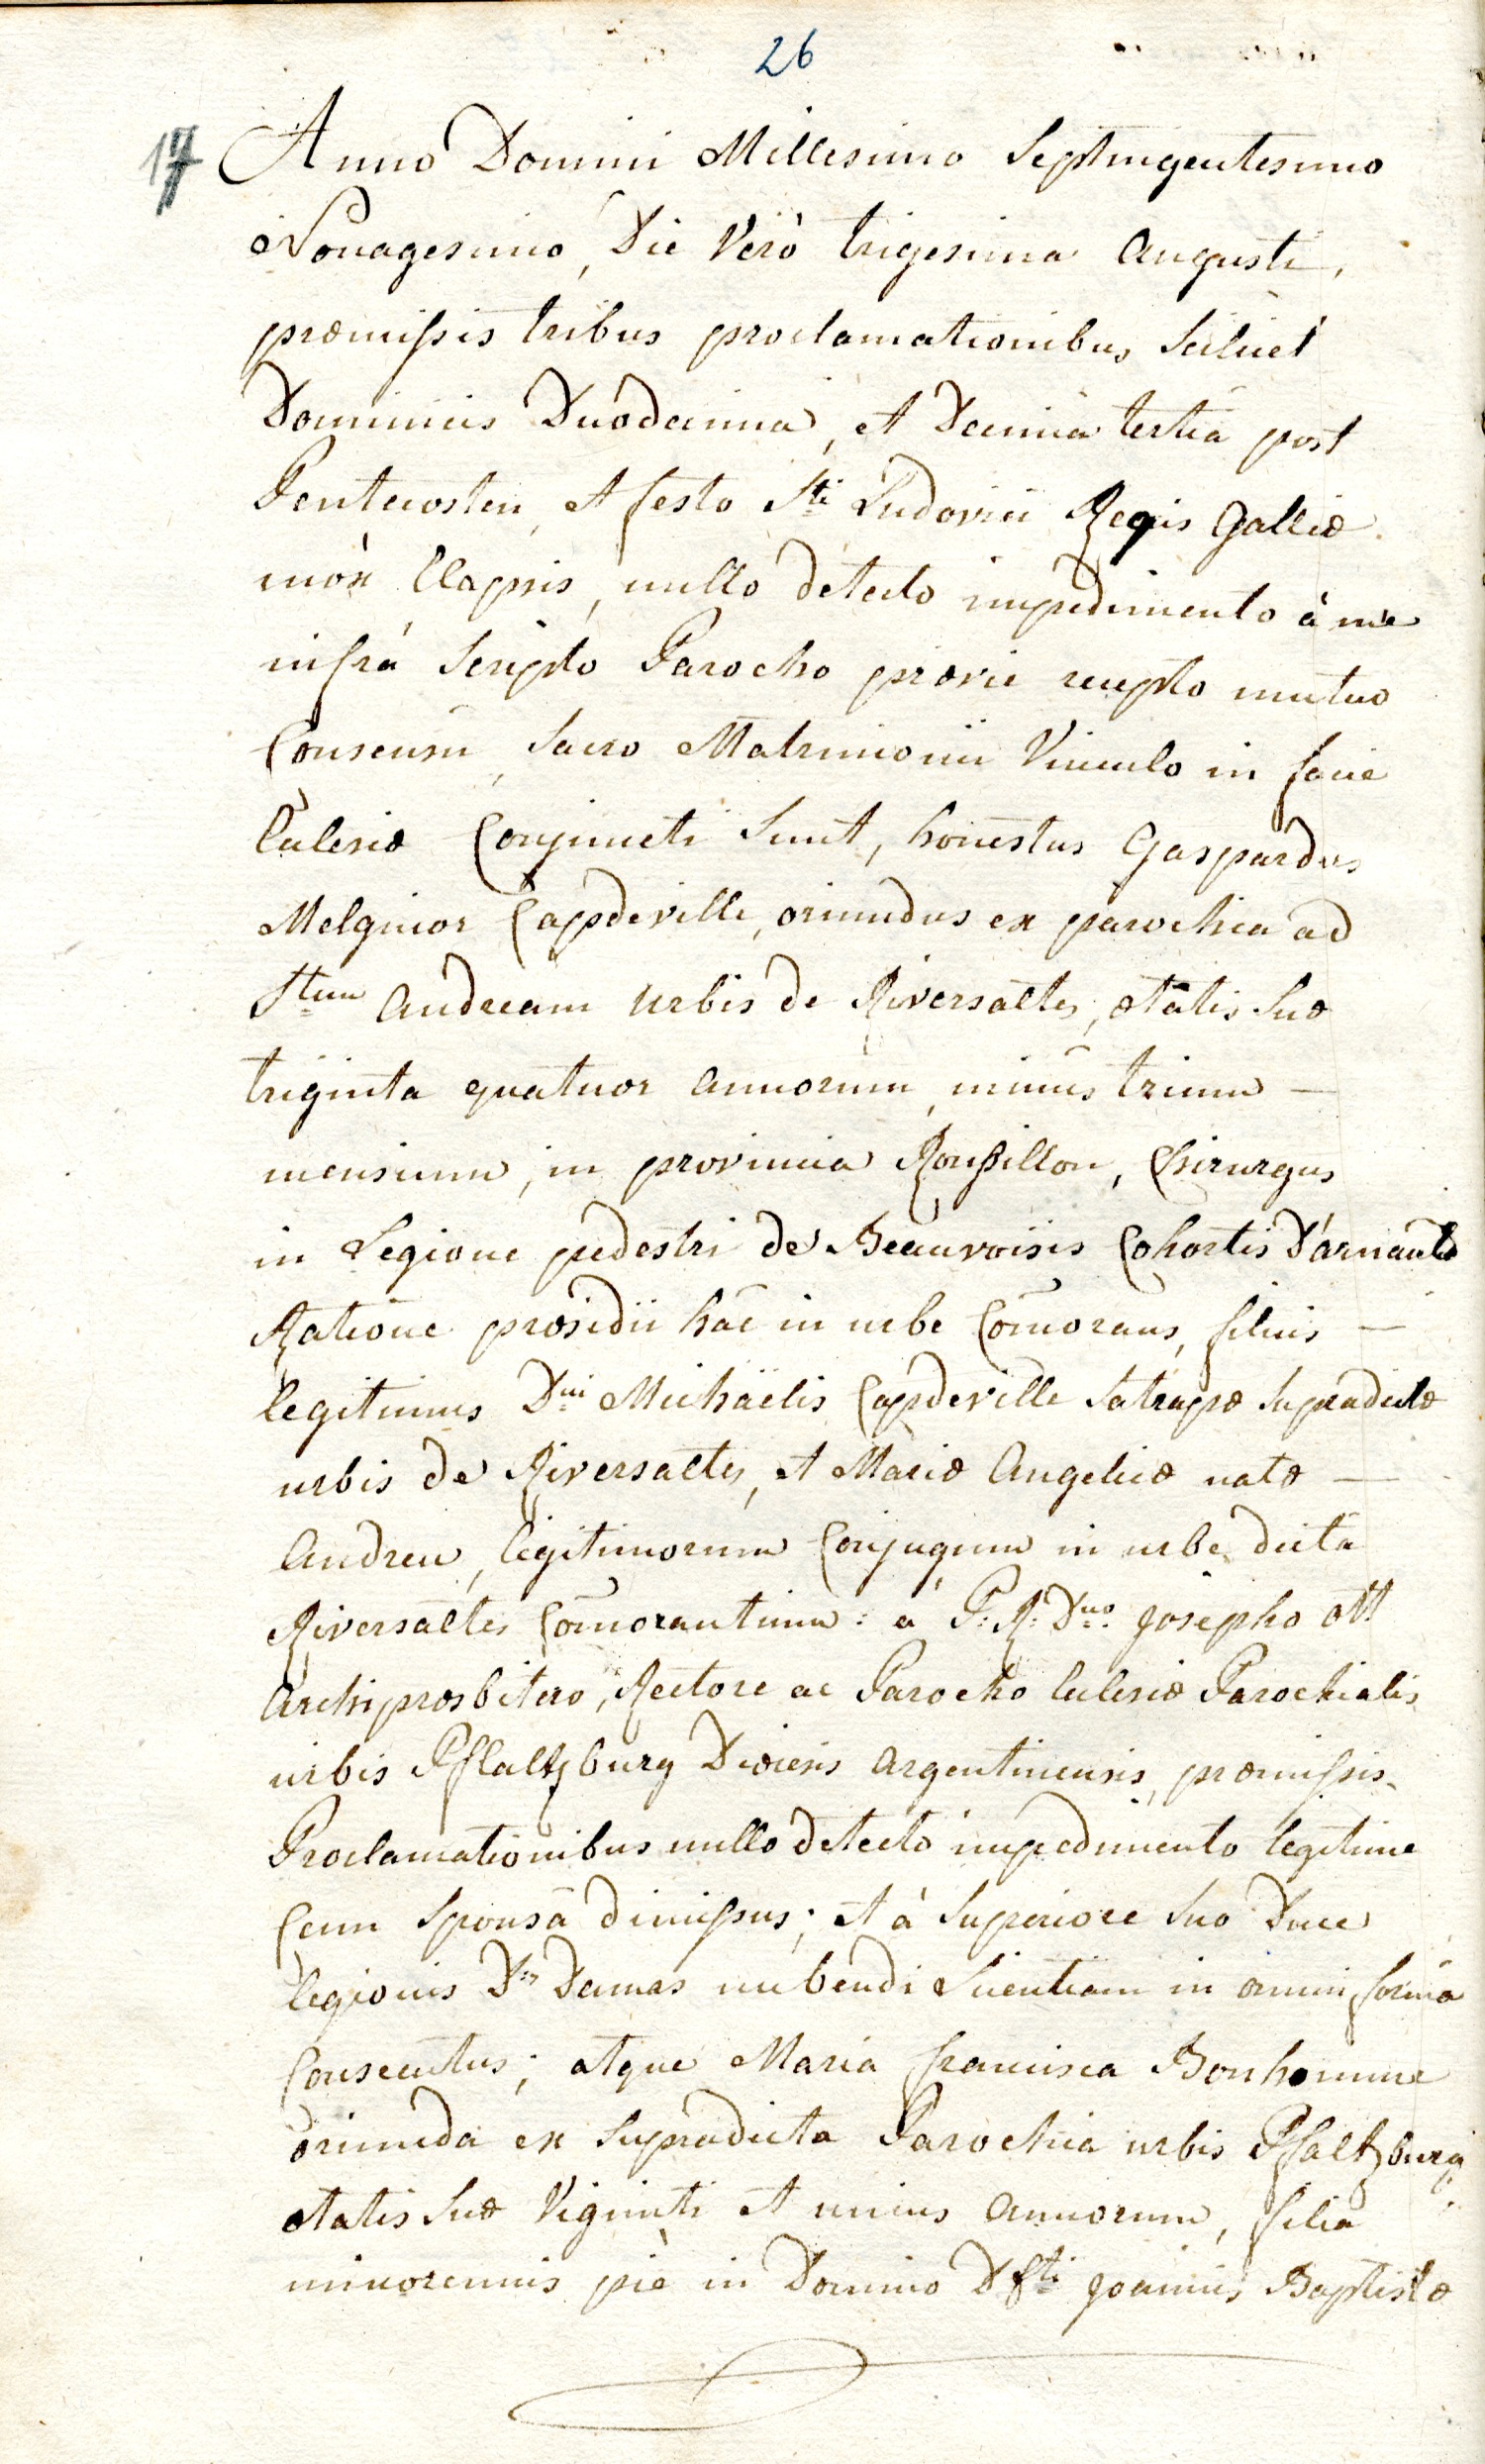 26
17 Anno Domini Millesimo Septingentesimo
Nonagesimo, Die Verò trigesima Augusti,
præmissis tribus proclamationibus Scilicet
Dominicis Duodecima, et Decimâ tertiâ post
Pentecosten, et festo Sti Ludovici Regis Galliæ
mòx Elapsis, nullo detecto impedimento à me
infrà Scripto Parocho prævie recepto mutuo
Consensu, Sacro Matrimonii Vinculo in facie
Ecclesiæ Conjuncti Sunt, honestus Gaspardus
Melquior Capdeville, oriundus ex parochia ad
Stum Andream urbis de Riversaltes, ætatis Suæ
triginta quatuor annorum, minus trium —
mensium, in provincia Roussillon, Chirurgus
in Legione pedestri de Beauvoisis Cohortis D'arnault
Ratione præsidii hac in urbe Com̄orans, filius —
legitimus Dni Michaëlis Capdeville Satrapæ Supradictæ
urbis de Riversaltes, et Mariæ Angelicæ natæ —
Andreu, legitimorum Conjugum in urbe dicta
Riversaltes Com̄orantium: a P: R: Dno Josepho Ott
Archipresbitero, Rectore ac Parocho Ecclesiæ Parochialis
urbis Pfaltzburg Diœcesis Argentinensis, præmissis
Proclamationibus nullo detecto impedimento legitime
Cum Sponsâ dimissus; et à Superiore Suo Duce
legionis Dno Damas nubendi Licentiam in omni forma
Consecutus; atque Maria francisca Bonhomme
oriunda ex Supradicta Parochia urbis Pfaltzburg
ætatis Suæ Viginti et unius annorum, filia
minorennis piè in Domino Dfti Joannis Baptistæ